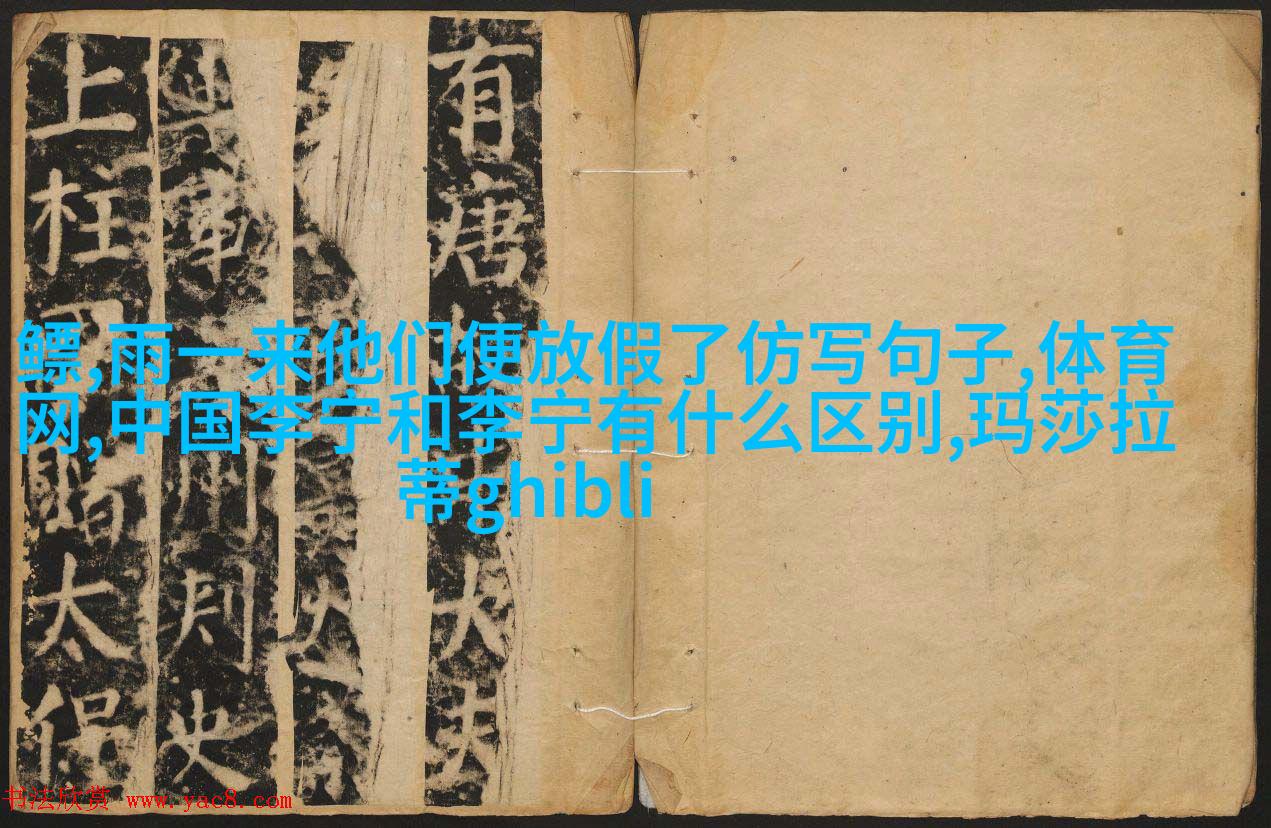 有唐大夫
軍州刺史
上柱國贈太保
鳔,雨一来他们便放假了仿写句子,体育
网,中国李宁和李宁有什么区别,玛莎拉
蒂ghibli
书法欣赏 www.yac8.com